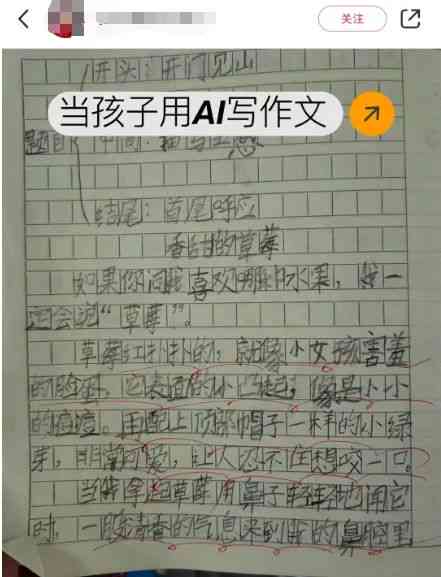 关注
开头:开门见山
当孩子用AI写作文
题目 中间:描写生意
结尾:首尾呼应
香甜的草莓
如果你问我喜欢哪种水果,我一
定会说“草莓”。
草莓红扑扑的,就像小女孩害羞
的脸蛋,它表面的小凸起,像是小小
的痘痘。再配上顶部帽子一样的小绿
芽,非常可爱,让人忍不住想咬一口。
当我拿起草莓用鼻子轻轻地闻它
时,一股清香的气息来到我的鼻腔里